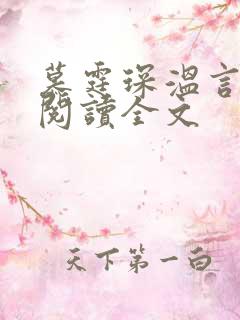 慕霆琛溫言
閱讀全文
天下第一白